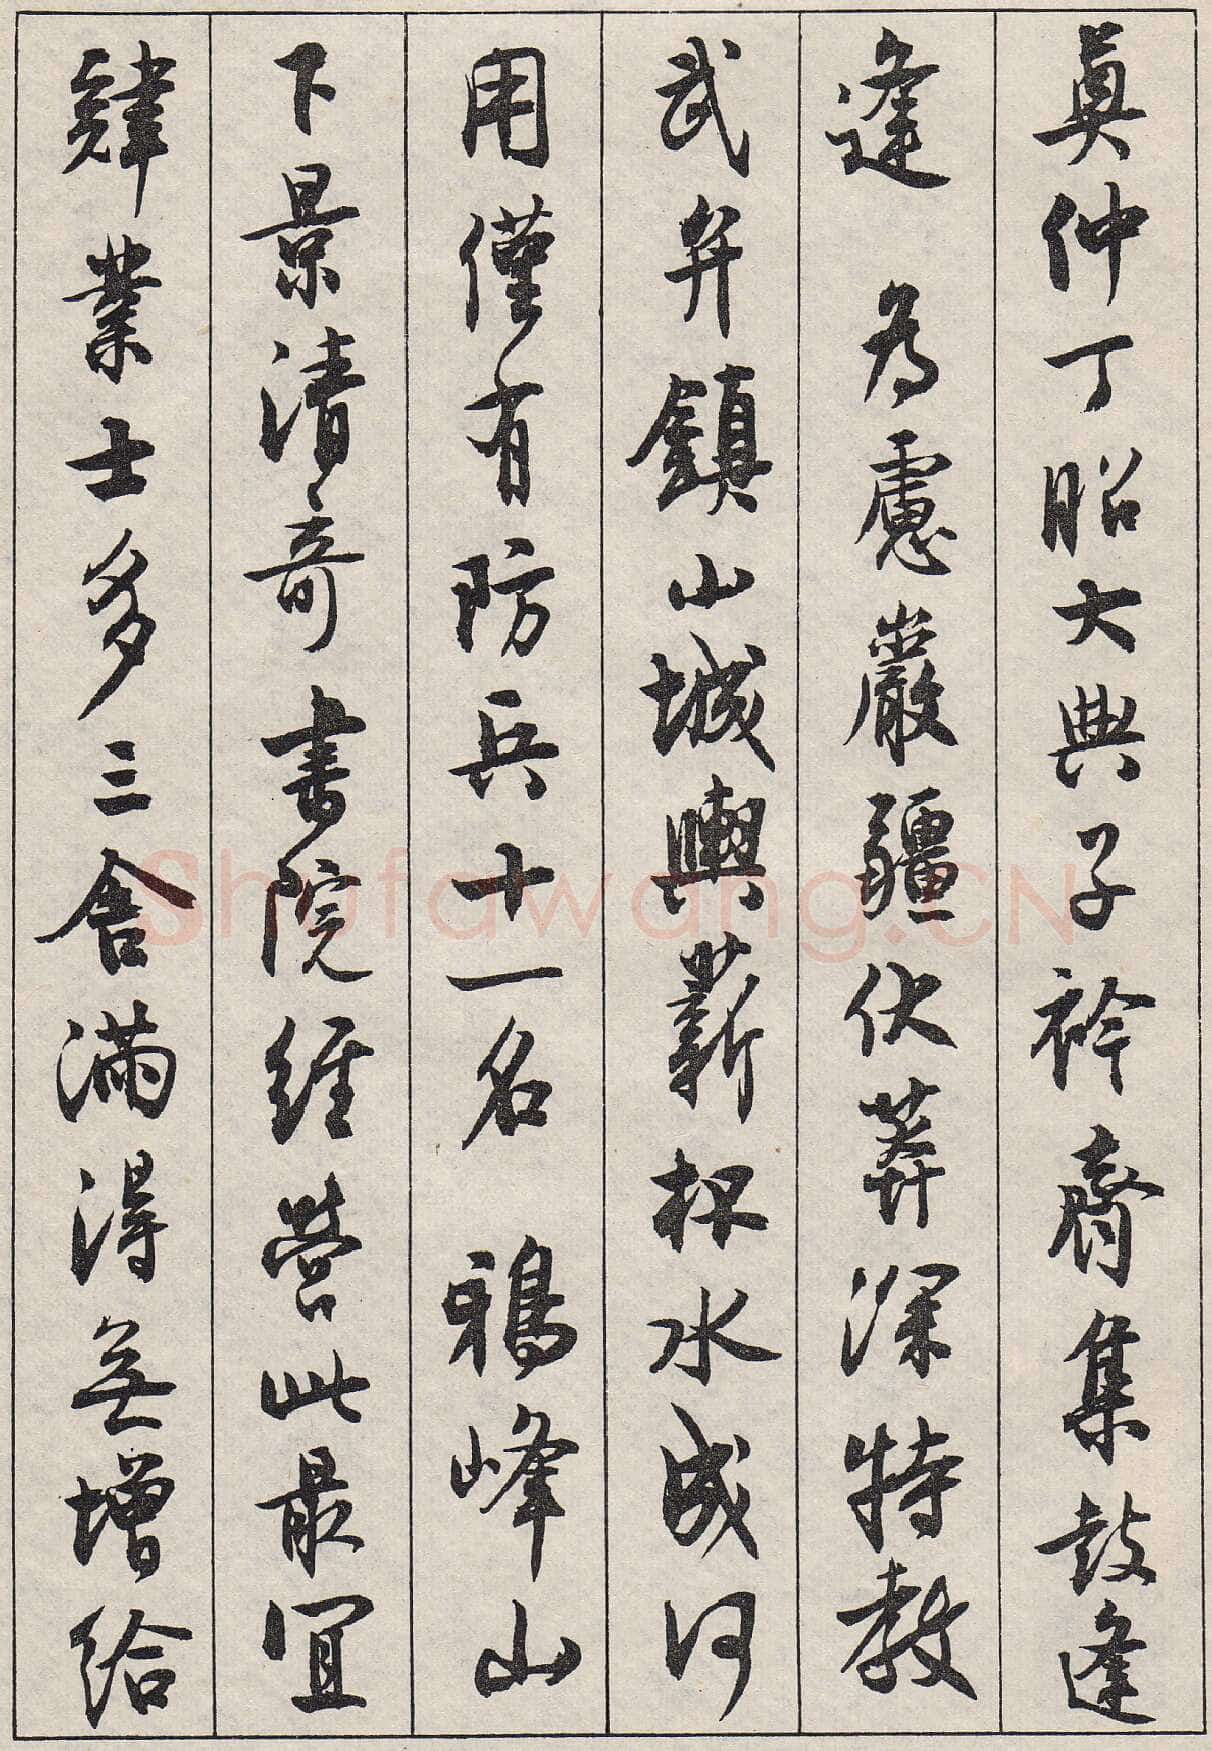 奠仲丁昭大典子衿齊集鼓逢
逢 為慮巖疆伏莽深特教
武弁鎮山城輿薪杯水成何
用僅有防兵十一名 鴉峰山
下景清奇書院經營此最宜
肄業士多三舍滿得無增給
Shufawang.CN